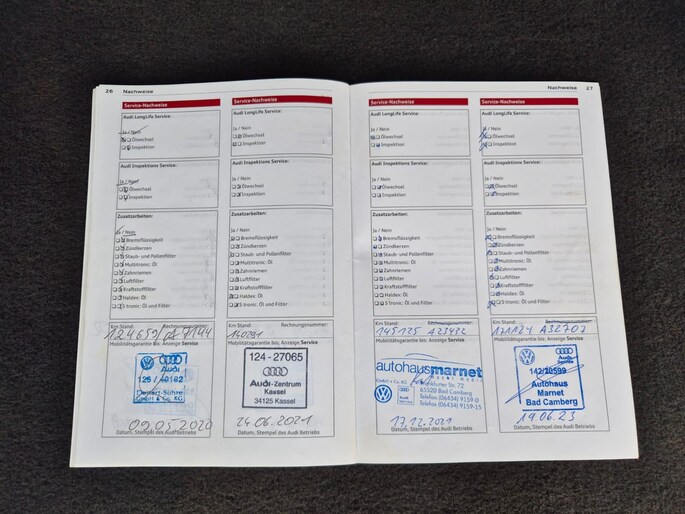 26 Nachweise
Service-Nachweise
Audi LongLife Service:
Ja / Nein
Ölwechsel
Inspektion
Audi Inspektions Service:
Ja / Nein
Ölwechsel
Inspektion
Zusatzarbeiten:
Ja / Nein
Bremsflüssigkeit
Zündkerzen
Staub- und Pollenfilter
Multitronic: Öl
Zahnriemen
Luftfilter
Kraftstofffilter
Haldex: Öl
S tronic: Öl und Filter
Km Stand: Rechnungsnummer:
124659
Mobilitätsgarantie bis: Anzeige Service
Audi
GmbH & Co. KG
09.05.2020
Datum, Stempel des Audi Betriebs
Service-Nachweise
Audi LongLife Service:
Ja / Nein
Ölwechsel
Inspektion
Audi Inspektions Service:
Ja / Nein
Ölwechsel
Inspektion
Zusatzarbeiten:
Ja / Nein
Bremsflüssigkeit
Zündkerzen
Staub- und Pollenfilter
Multitronic: Öl
Zahnriemen
Luftfilter
Kraftstofffilter
Haldex: Öl
S tronic: Öl und Filter
Km Stand: Rechnungsnummer:
Mobilitätsgarantie bis: Anzeige Service
124-27065
Audi-Zentrum
Kassel
34125 Kassel
24.06.2021
Datum, Stempel des Audi Betriebs
Nachweise 27
Service-Nachweise
Audi LongLife Service:
Ja / Nein
Ölwechsel
Inspektion
Audi Inspektions Service:
Ja / Nein
Ölwechsel
Inspektion
Zusatzarbeiten:
Ja / Nein
Bremsflüssigkeit
Zündkerzen
Staub- und Pollenfilter
Multitronic: Öl
Zahnriemen
Luftfilter
Kraftstofffilter
Haldex: Öl
S tronic: Öl und Filter
Km Stand: Rechnungsnummer:
145125 A23422
Mobilitätsgarantie bis: Anzeige Service
autohausmarnet
GmbH & Co. KG
Frankfurter Str. 72
65520 Bad Camberg
Telefon (06434) 9159-0
Telefax (06434) 9159-15
17.12.2021
Datum, Stempel des Audi Betriebs
Service-Nachweise
Audi LongLife Service:
Ja / Nein
Ölwechsel
Inspektion
Audi Inspektions Service:
Ja / Nein
Ölwechsel
Inspektion
Zusatzarbeiten:
Ja / Nein
Bremsflüssigkeit
Zündkerzen
Staub- und Pollenfilter
Multitronic: Öl
Zahnriemen
Luftfilter
Kraftstofffilter
Haldex: Öl
S tronic: Öl und Filter
Km Stand: Rechnungsnummer:
171124 A32707
Mobilitätsgarantie bis: Anzeige Service
Autohaus
Marnet
Bad Camberg
19.06.23
Datum, Stempel des Audi Betriebs